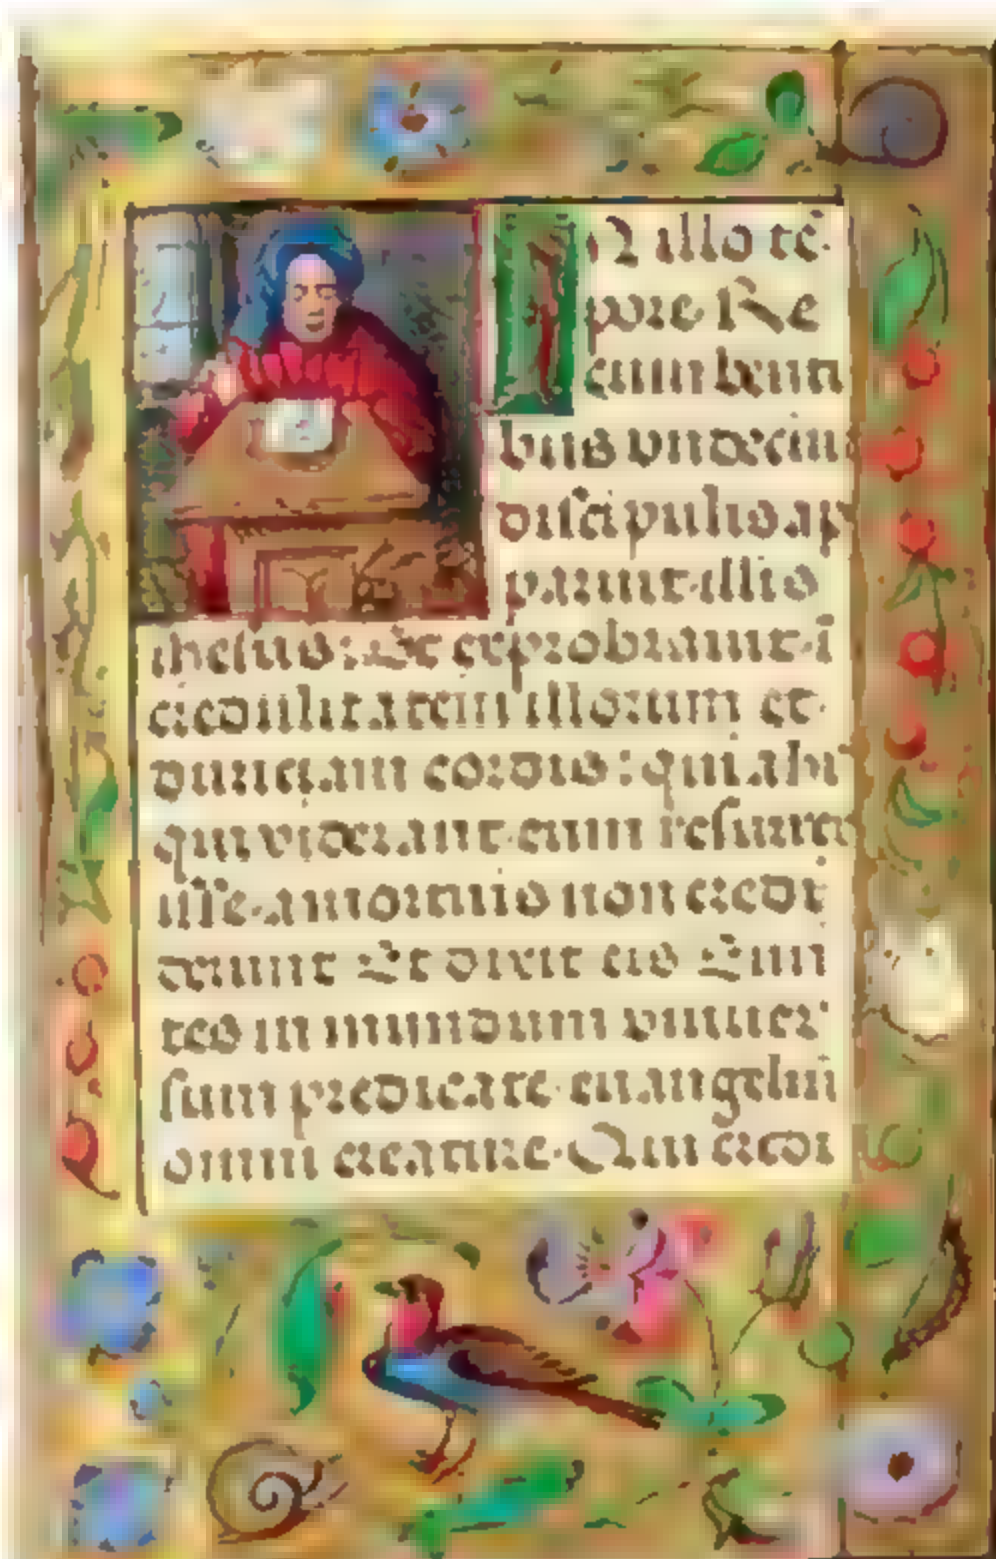 In illo te
pore Re
cumbenti
bus undecim
discipulis ap
paruit illis
ihesus: Et exprobrauit i
credulitatem illorum et
duriciam cordis: quia hii
qui viderant eum resurrex
isse a mortuis non credi
derunt Et dixit eis Eun
tes in mundum vniuer
sum predicate euangelium
omni creature. Qui credi